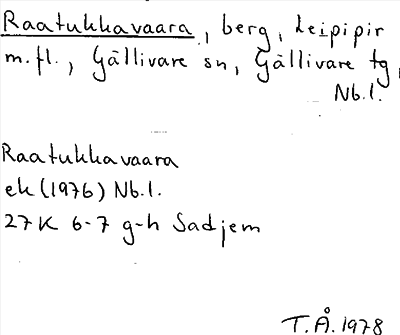 Raatukkavaara, berg, Leipipir
m.fl., Gällivare sn, Gällivare tg,
Nb.l.
Raatukkavaara
ek (1976) Nb.l.
27K 6-7 g-h Sadjem
T.Å. 1978